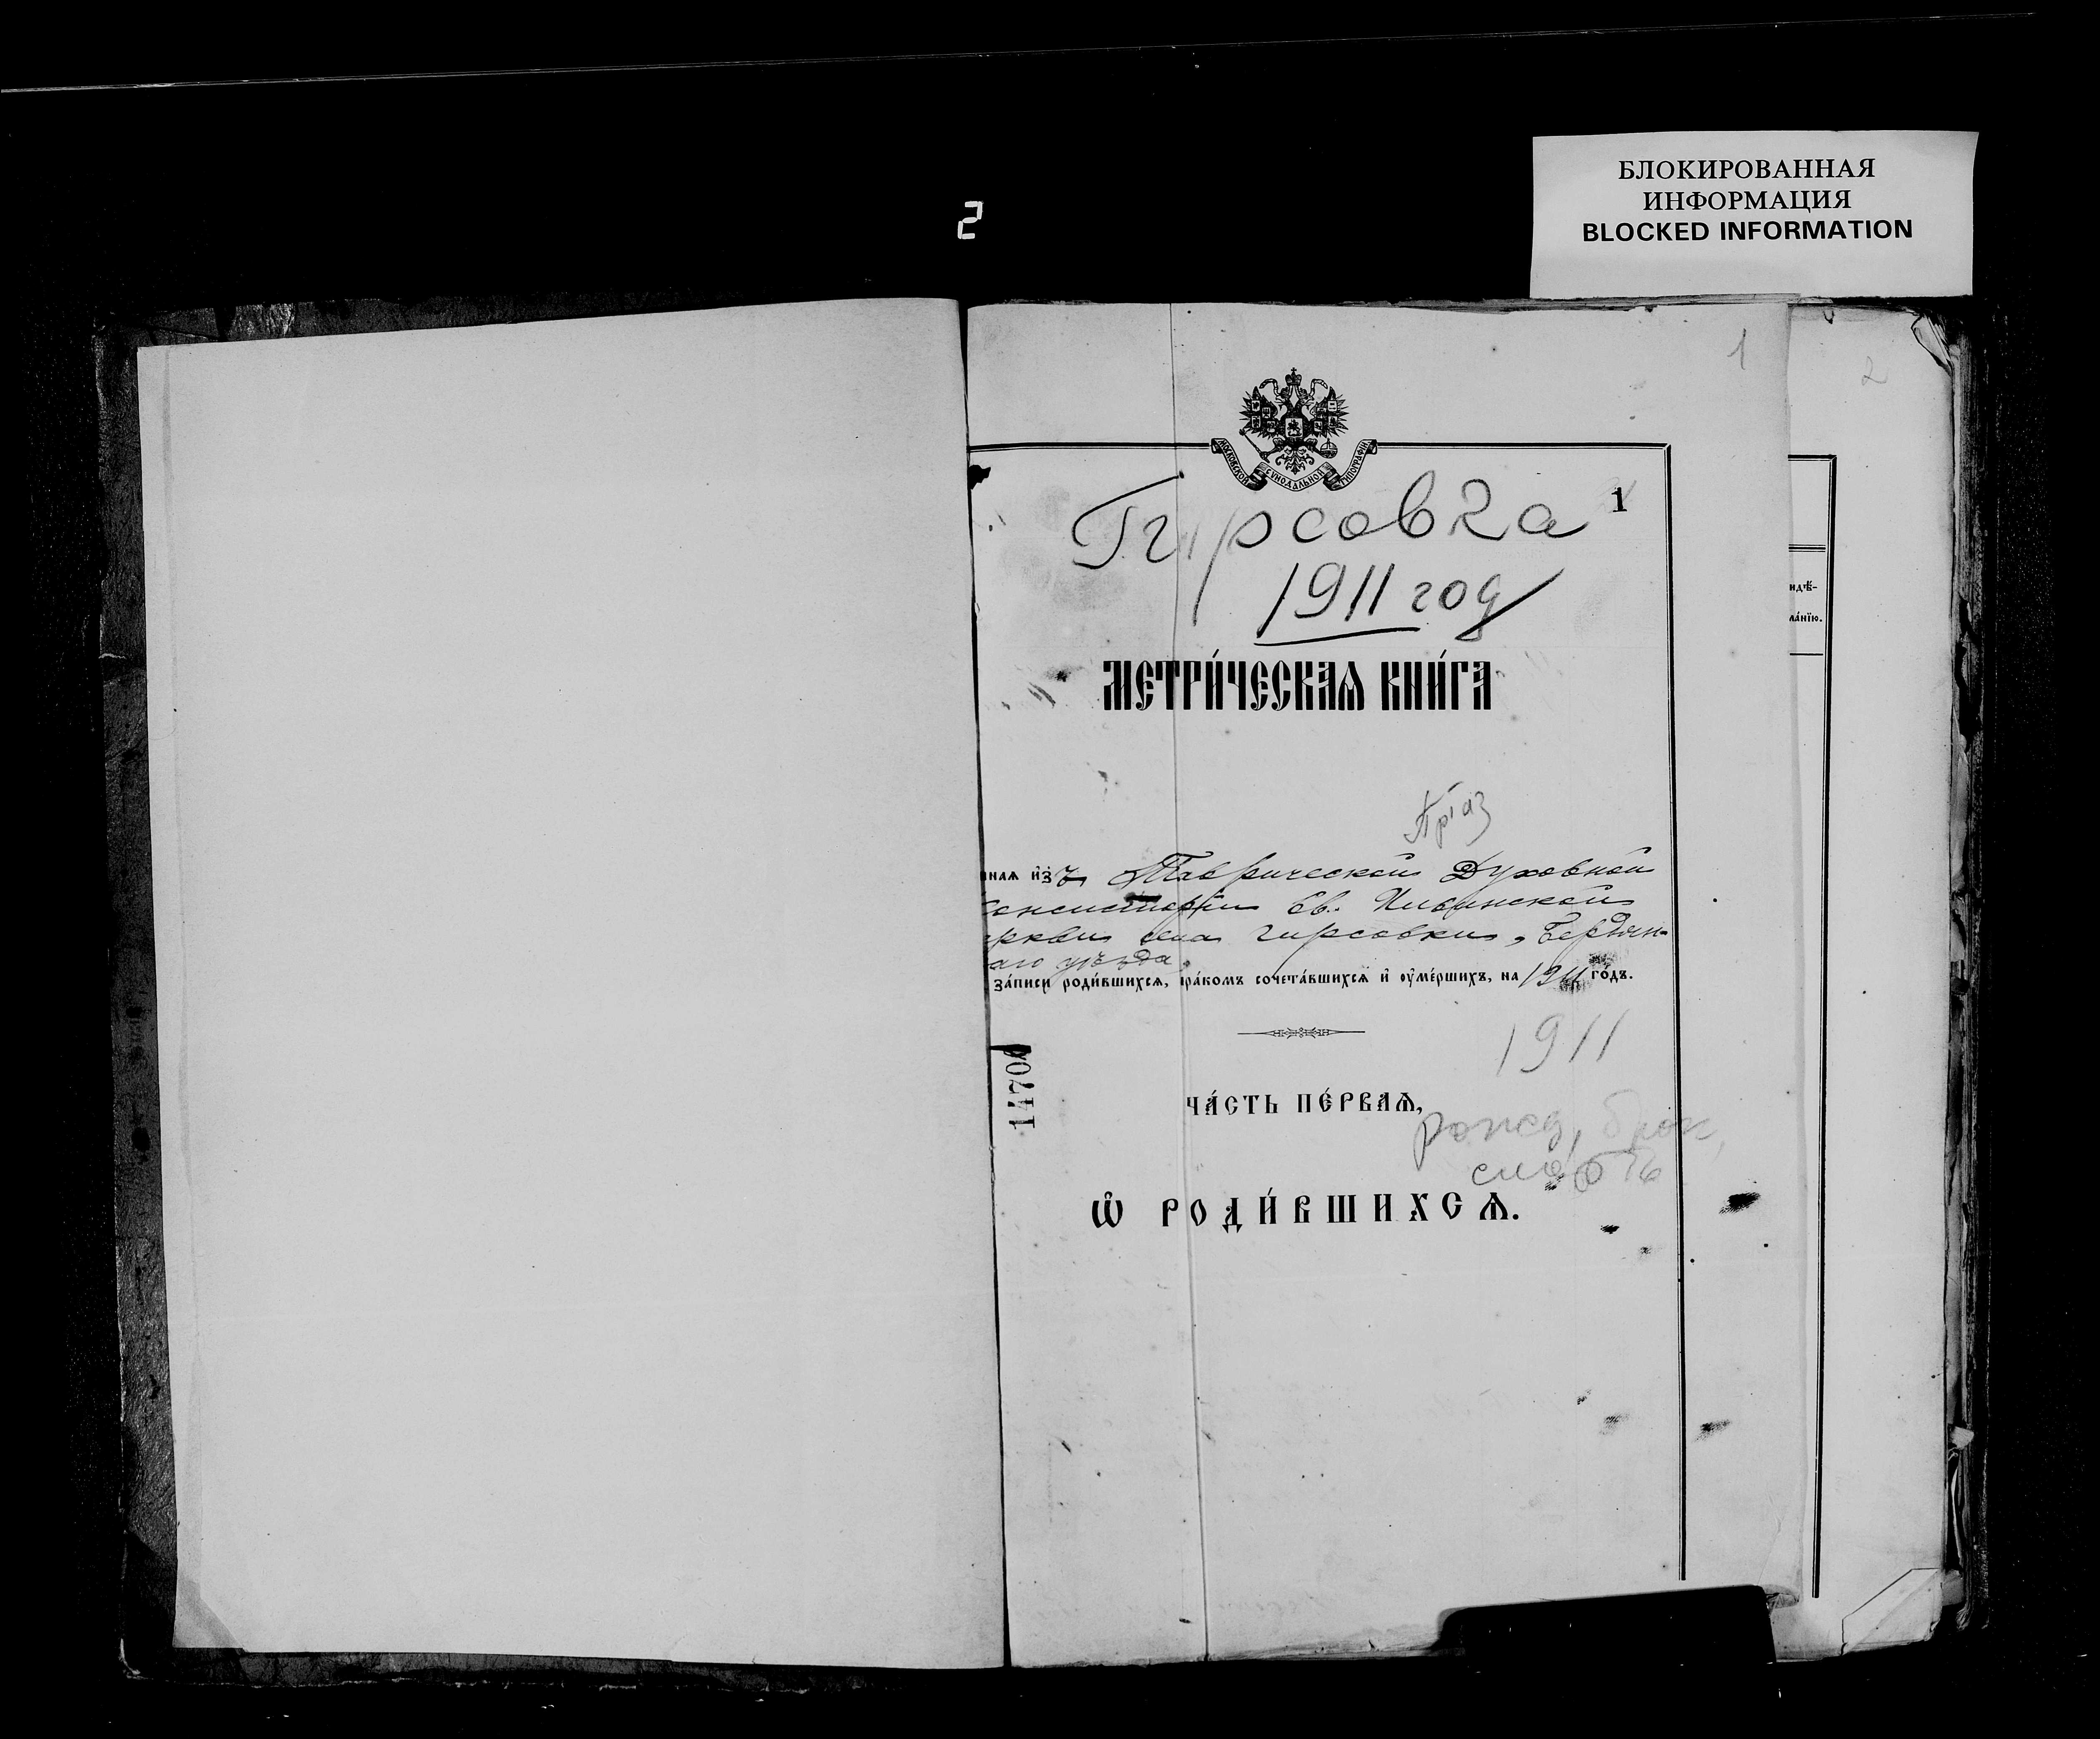 БЛОКИРОВАННАЯ
ИНФОРМАЦИЯ
BLOCKED INFORMATION
2
1
2
МОСКОВСКОЙ СѴНОДАЛЬНОЙ ТИПОГРАФІИ
1
Гирсовка
1911 год
МЕТРИ́ЧЕСКАѦ КНИ́ГА
ндѣ-
ла́нїю.
ннаѧ и҆зъ Таврической Духовной
Консисторіи Св.
еркви села Гирсовки, Бердян-
аго уѣзда
за́писи роди́вшихсѧ, бра́комъ сочета́вшихсѧ и҆ ᲂу҆ме́ршихъ, на 1911 го́дъ.
1911
14709
ЧА́СТЬ ПЕ́РВАѦ,
рожд, брак,
смерть
Ѡ҆ РОДИ́ВШИХСѦ.